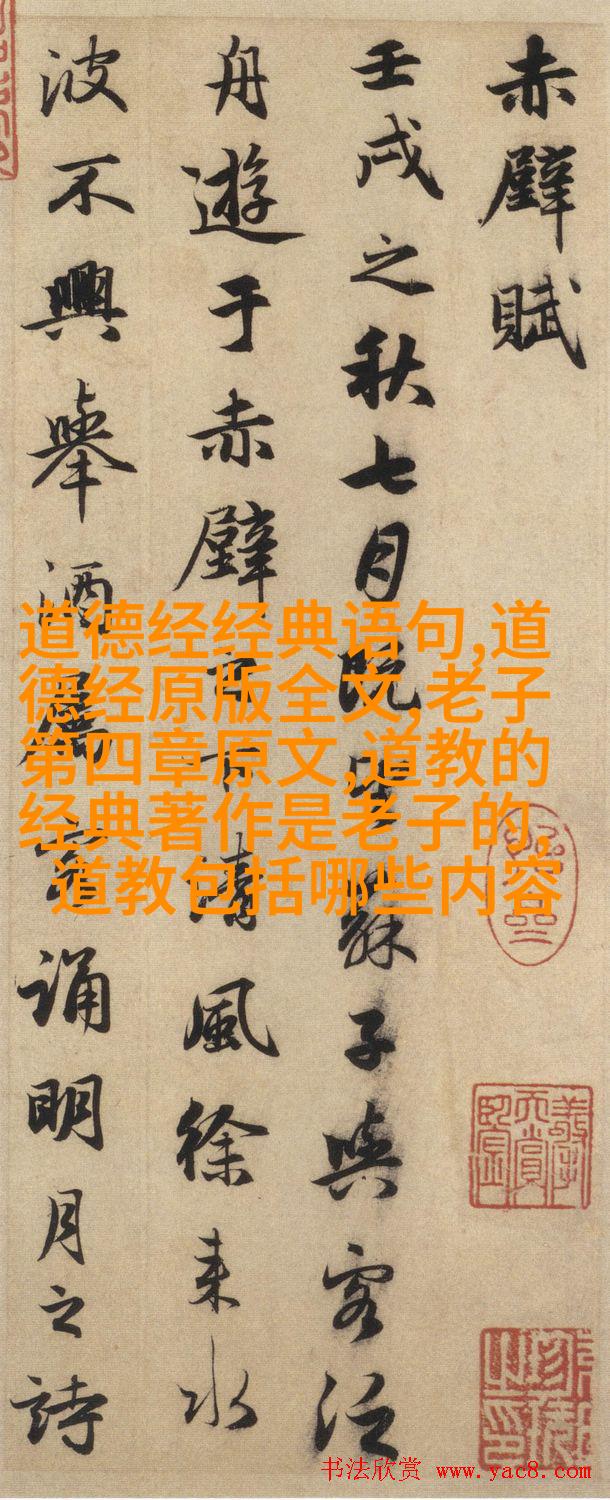 赤壁賦
壬戌之秋七月既望蘇子與客泛
舟遊于赤壁之下清風徐来水
波不興舉酒屬客誦明月之詩
道德经经典语句,道
德经原版全文,老子
第四章原文,道教的
经典著作是老子的,
道教包括哪些内容
书法欣赏 www.yac8.com